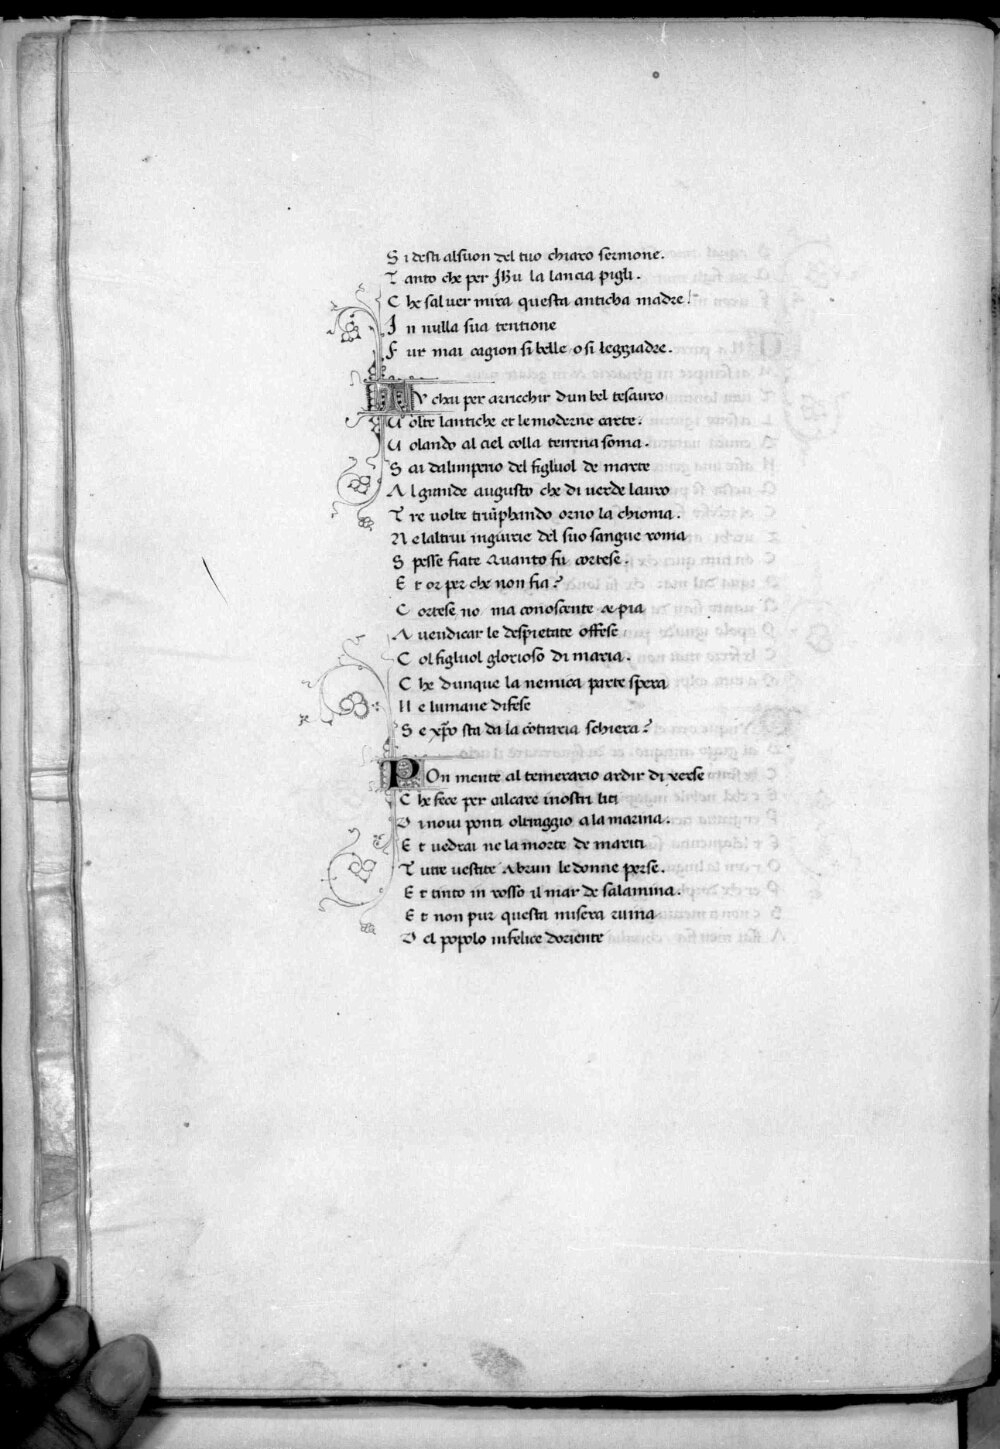 S i desti alsuon del tuo chiaro sermone.
T anto che per Jhu la lancia pigli.
C he sal uer mira questa anticha madre!
I n nulla sua tentione
F ur mai cagion si belle o si leggiadre.
TV chai per arricchir dun bel tesauro
U olte lantiche et le moderne carte.
U olando al ciel colla terrena soma.
S ai dalimperio del figluol de marte
A l grande augusto che di uerde lauro
T re uolte triũphando orno la chioma.
N e laltrui ingiurie del suo sangue roma
S pesse fiate quanto fu cortese.
E t or per che non fia?
C ortese no ma conoscente et pia
A uendicar le despietate offese
C ol figluol glorioso di maria.
C he dunque la nemica parte spera
N e lumane difese
S e xp̃o sta da la cõtraria schiera?
POn mente al temerario ardir di xerse
C he fece per calcare i nostri liti
D i noui ponti oltraggio a la marina.
E t uedrai ne la morte de mariti
T utte uestite a brun le donne perse.
E t tinto in rosso il mar de salamina.
E t non pur questa misera ruina
D el popolo infelice doriente